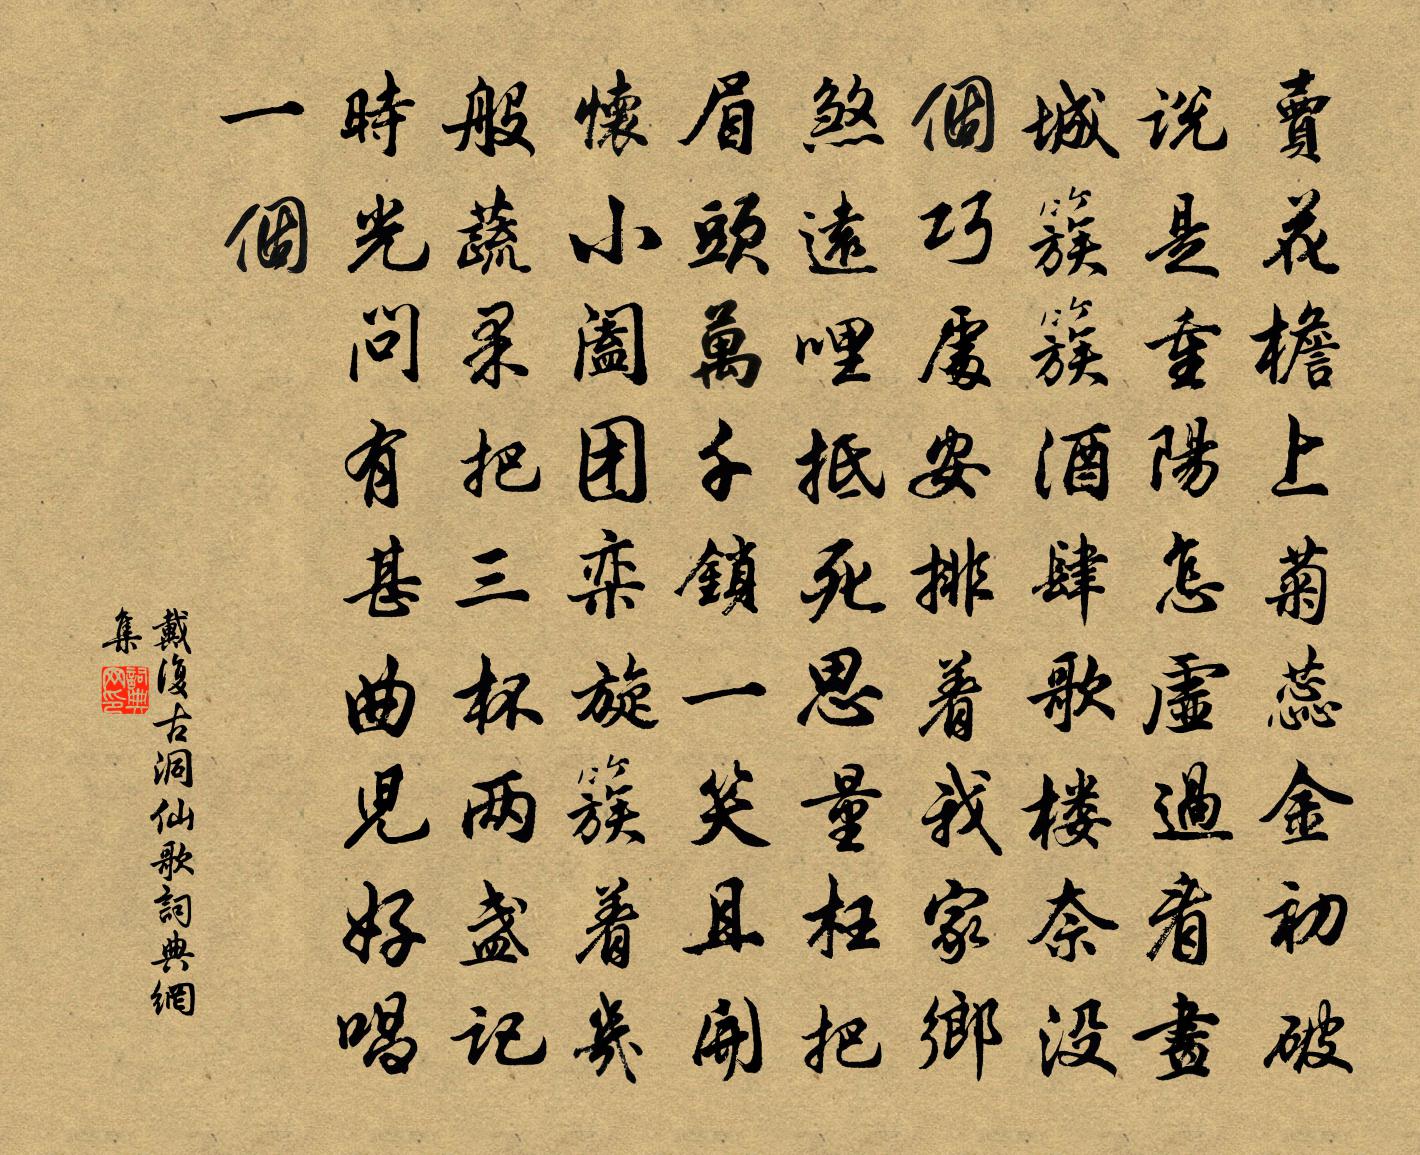 賣花檐上菊蕊金初破
说是重陽怎虛過看畫
城簇簇酒肆歌楼奈没
個巧處安排着我家鄉
煞遠哩抵死思量枉把
眉頭萬千鎖一笑且開
懷小阖团栾旋簇着幾
般蔬果把三杯两盏記
時光問有甚曲兒好唱
一個
戴復古洞仙歌詞典網
集
詞典网印